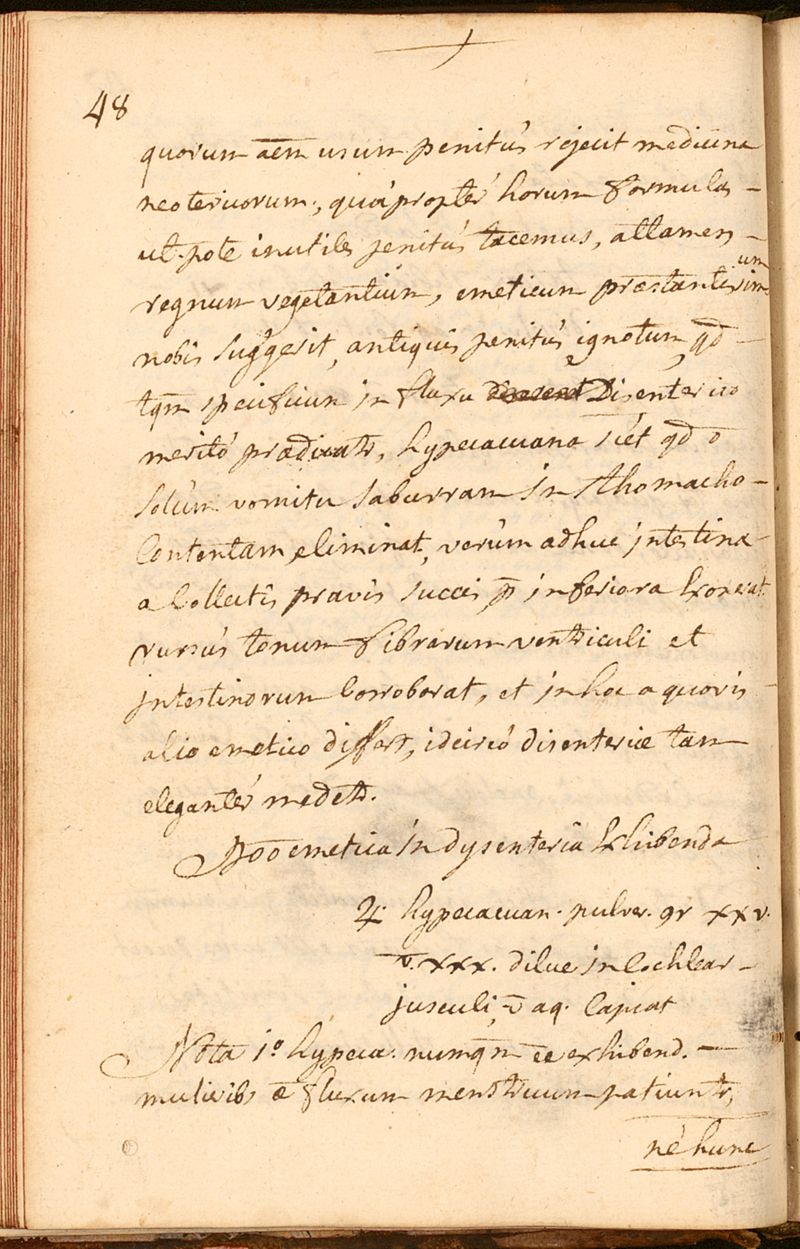 48
quorum aēm usum penitùs rejecit medicina
neotericorum, quáproptér horum formulas
ut-pote inutiles penitús tacemus, attamen
regnum vegetantium, emeticum præstantissim
um
nobis suggerit, antiquis penitús ignotum, qd̄
tqm̄ specificum in fluxu Disenterico
meritó prædicatr, hypecacuana sc̄et qd̄ ō
solùm vomitu saburram in sthomacho
Contentam eliminat, verùm adhuc intestina
a Collectis pravis succis p̄ inferiora Exonerat
rursús tonum fibrarum ventriculi et
intestinorum Corroborat, et in hoc a quovis
alio emetico differt, idcircó disenteriæ tam
elegantér medetr.
emetica in dysenteria Exhibenda
♃ hypecacuan. pulver. gr xxv.
v. xxx. dilue in Cochlear
jusculi, v̄ aq. Capiat
Nota 1º hypeca. numqm̄ ēē exhibend.
mulierib; fluxum menstruum patiuntr,
né hunc